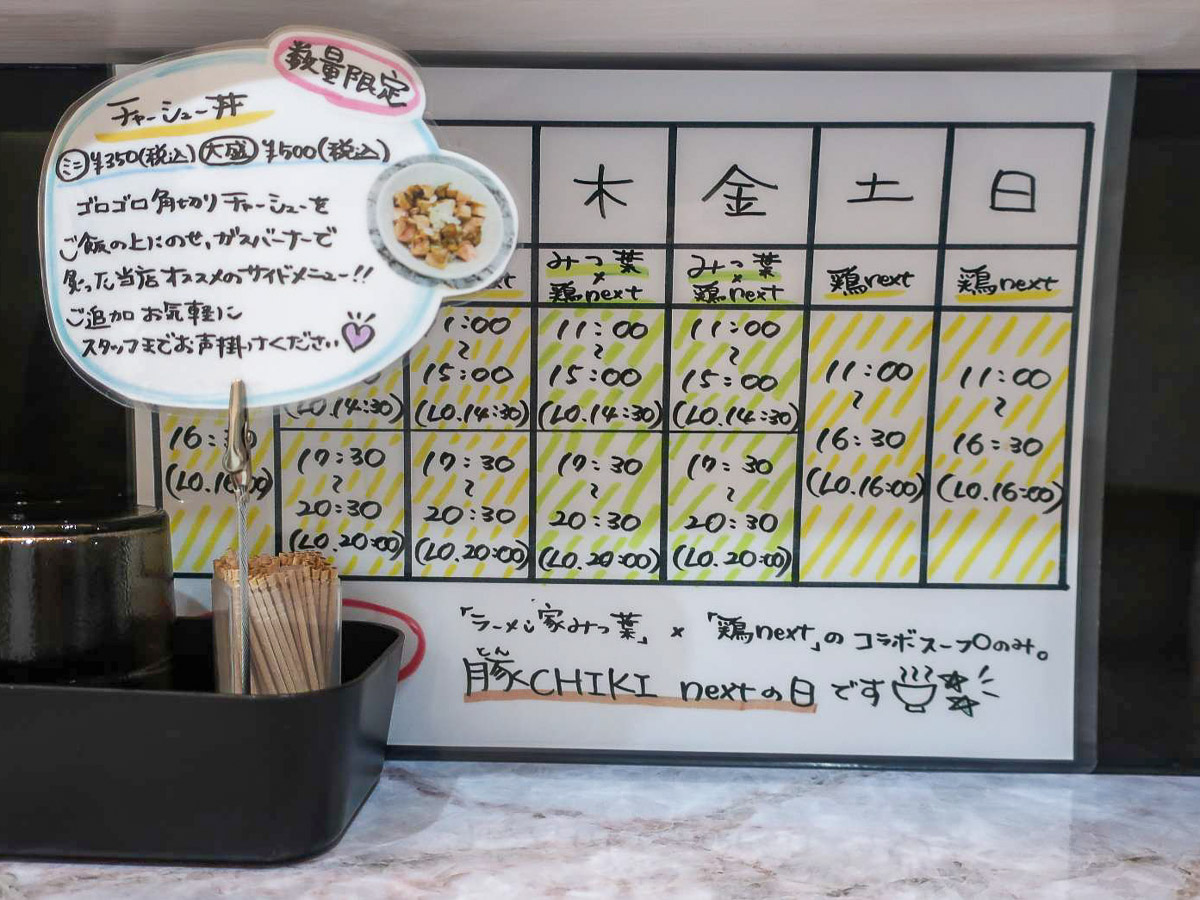 数量限定
チャーシュー丼
ミニ ¥350(税込) 大盛 ¥500(税込)
ゴロゴロ角切りチャーシューを
ご飯の上にのせ、ガスバーナーで
炙った当店オススメのサイドメニュー!!
ご追加 お気軽に
スタッフまでお声掛けください
木 金 土 日
みつ葉 みつ葉
× ×
鶏next 鶏next 鶏next 鶏next
1:00 11:00 11:00 11:00 11:00
~ ~ ~ ~ ~
15:00 15:00 15:00 16:30 16:30
(LO.14:30) (LO.14:30) (LO.14:30) (LO.14:30) (LO.16:00) (LO.16:00)
16:30 17:30 17:30 17:30 17:30
~ ~ ~ ~
20:30 20:30 20:30 20:30
(LO.20:00) (LO.20:00) (LO.20:00) (LO.20:00)
「ラーメン家みつ葉」×「鶏next」のコラボスープ〇のみ。
とん
豚CHIKI nextの日です